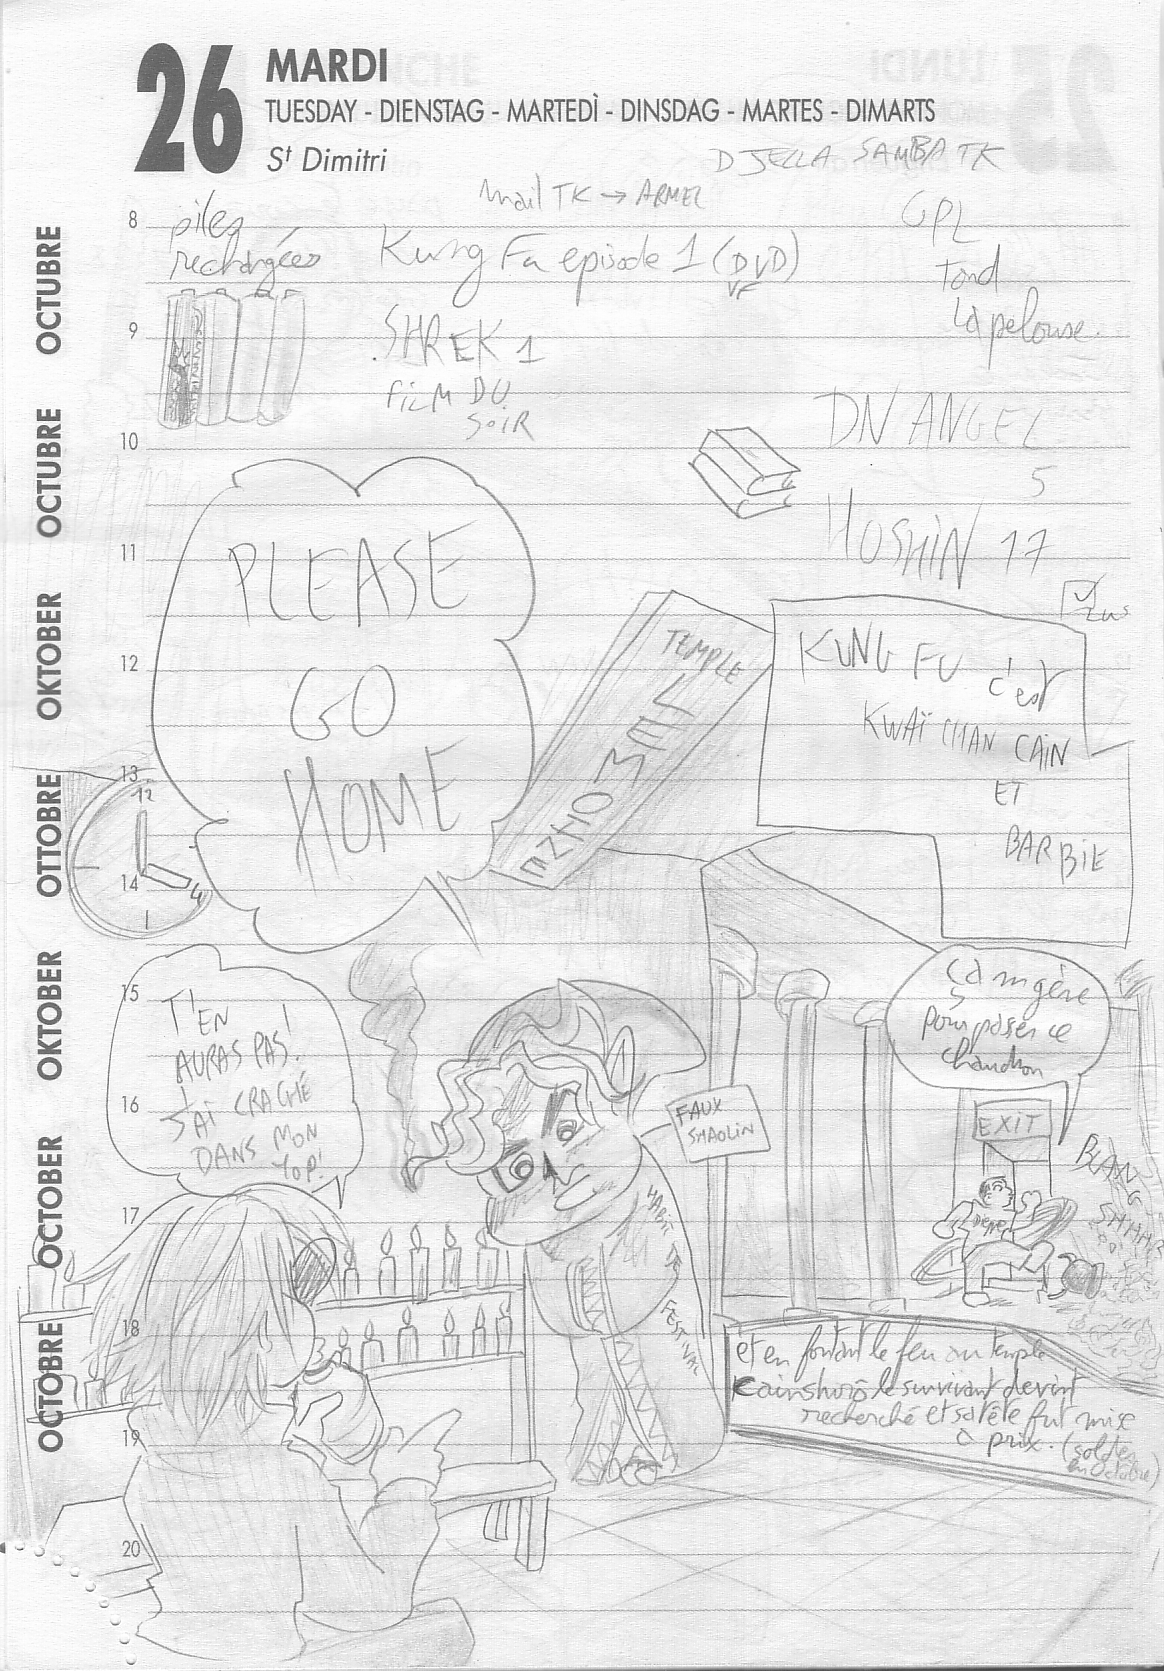 26 MARDI
TUESDAY - DIENSTAG - MARTEDÌ - DINSDAG - MARTES - DIMARTS
St Dimitri
DJELLA SAMBA TK
mail TK → ARMEL
piles
rechargées
Kung Fu episode 1 (DVD)
VF
SHREK 1
FILM DU
SOIR
GPL
tond
la pelouse.
DN ANGEL
5
HOSHIN 17
Lus
OCTUBRE
OCTUBRE
OKTOBER
OTTOBRE
OKTOBER
OCTOBER
OCTOBRE
8
9
10
11
12
13
14
15
16
17
18
19
20
PLEASE
GO
HOME
TEMPLE
KUNG FU c'est
KWAÏ CHAN CAIN
ET
BARBIE
12
4
T'EN
AURAS PAS!
J'AI CRACHÉ
DANS MON
YOP!
ça m gère
pour poser ce
chaudron
EXIT
FAUX
SHAOLIN
BLANG
SHHHR
HABIT DE FESTIVAL
et en foutant le feu au temple
cainshorō le survivant devint
recherché et sa tête fut mise
à prix. (soldée
en Octobre)